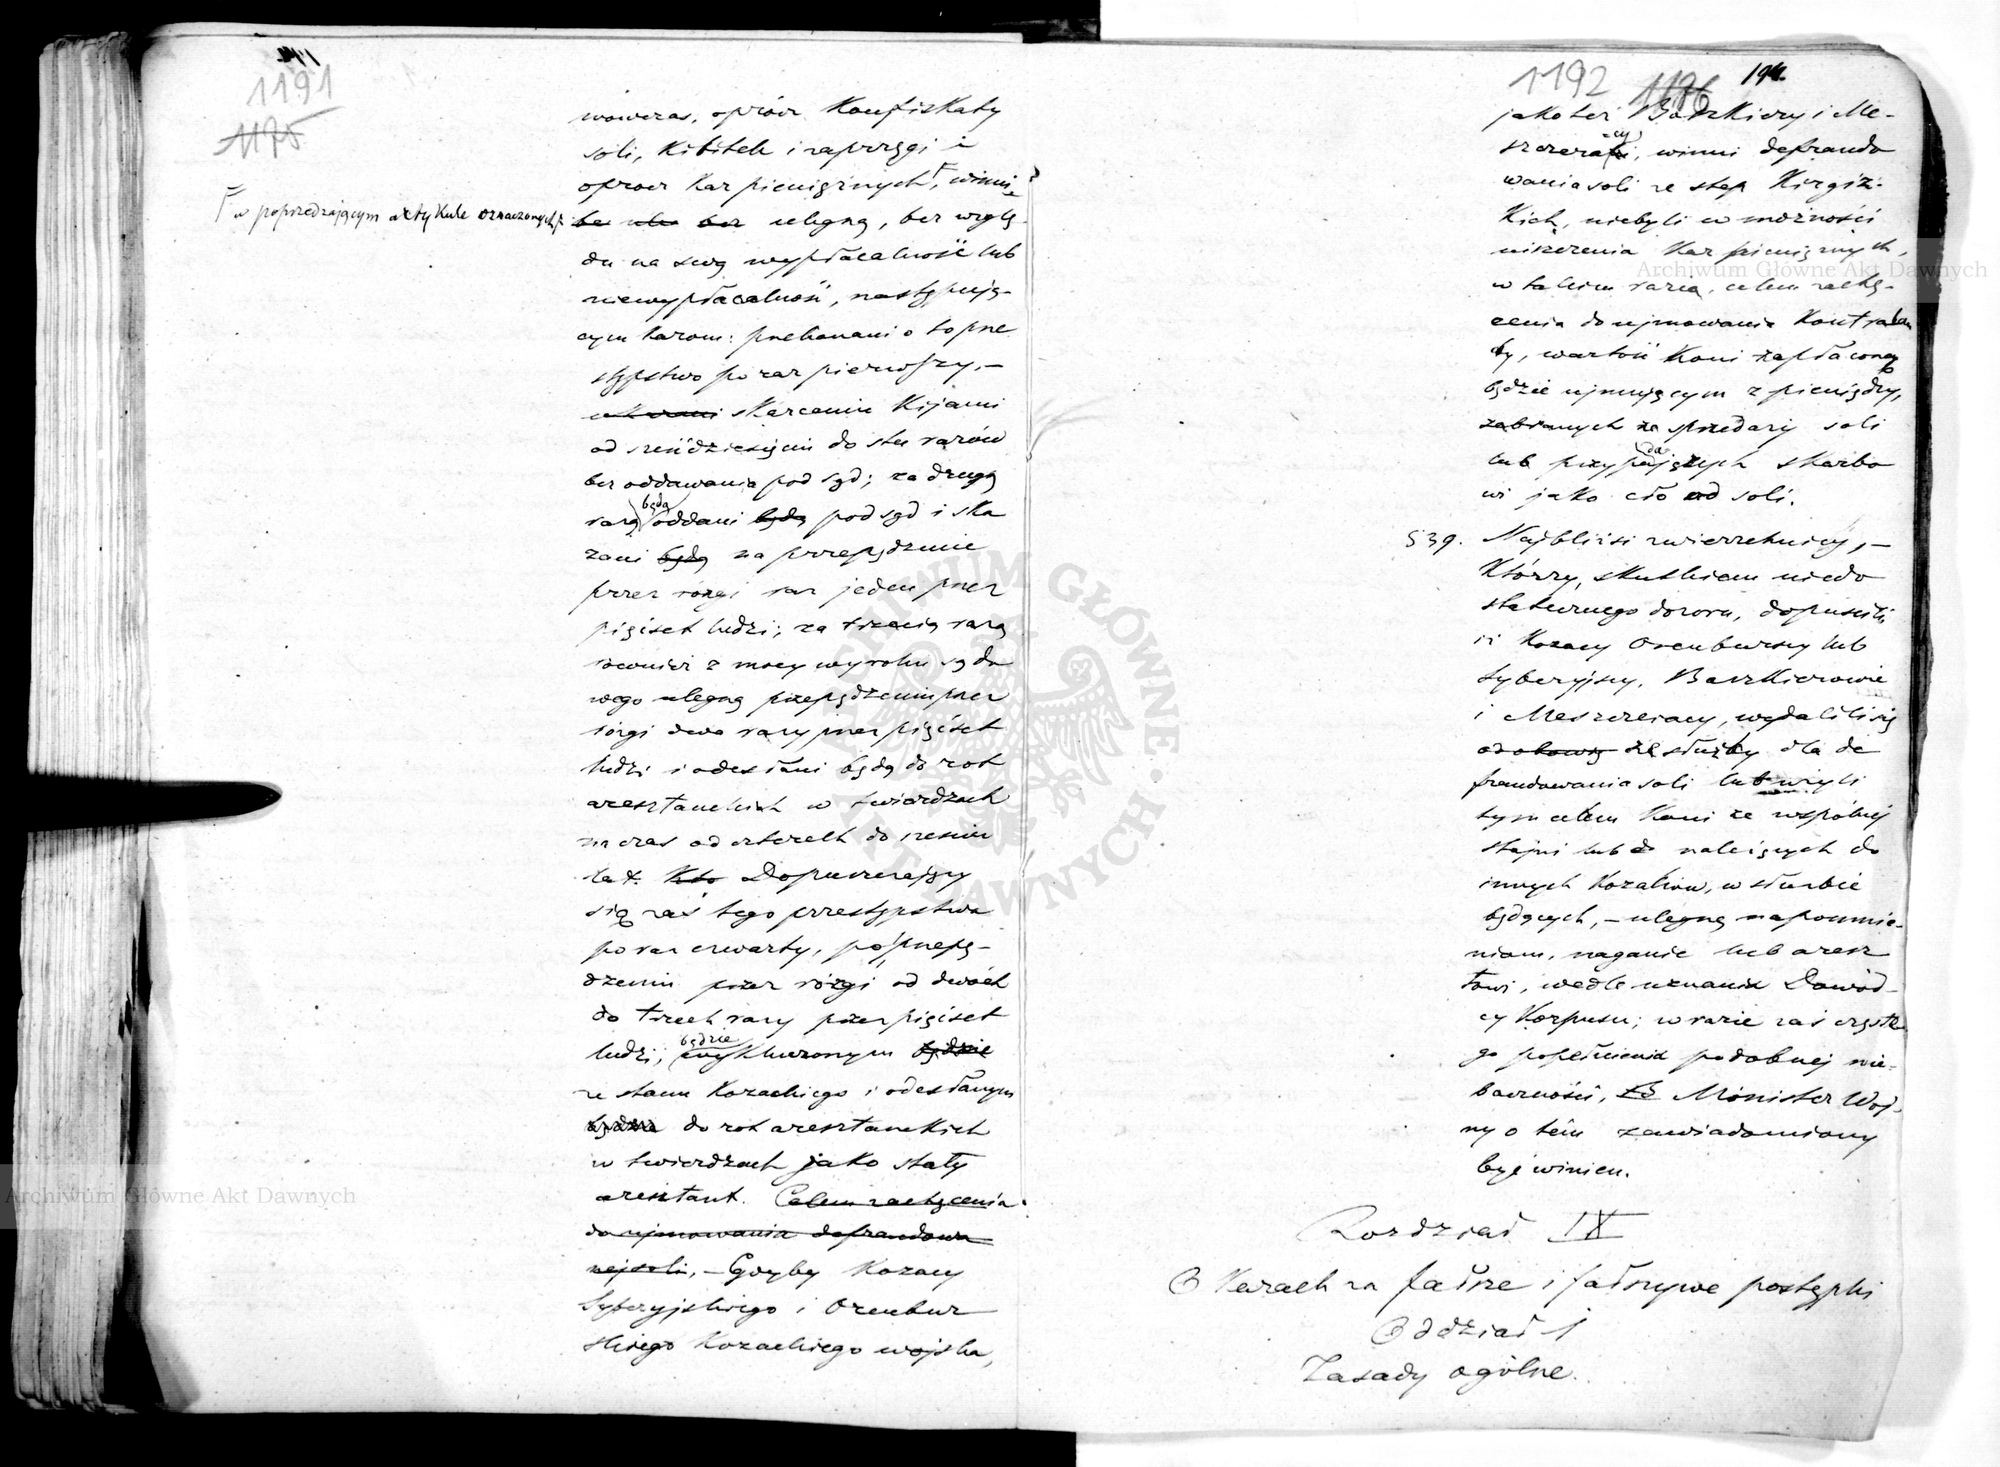 1191
1175
wówczas, oprócz Konfiskaty
soli, Kibitek i zaprzęgi i
oprócz Kar pieniężnych, winni
Γ w poprzedzającym artykule oznaczonych,
ulegną, bez wzglę-
du na swą wypłacalność lub
niewypłacalność, następują-
cym karom: przekonani o to prze
stępstwo po raz pierwszy, –
skarceniu Kijami
od sześćdziesięciu do stu razów
bez oddawania pod sąd; za drugą
razą będą oddani będą pod sąd i ska
zani będą na przepędzenie
przez rózgi raz jeden przez
pięćset ludzi; za trzecią razą
również z mocy wyroku sądo
wego ulegną przepędzeniu przez
rózgi dwa razy przez pięćset
ludzi i odesłani będą do rot
aresztanckich w twierdzach
na czas od czterech do sześciu
lat. Kto Dopuszczający
się zaś tego przestępstwa
po raz czwarty, po przepę-
dzeniu przez rózgi od dwóch
do trzech razy przez pięćset
ludzi, będzie wykluczonym będzie
ze stanu Kozackiego i odesłanym
będzie do rot aresztanckich
w twierdzach jako stały
aresztant. Celem zachęcenia
do ujmowania defraudowa
nej soli, – Gdyby Kozacy
Syberyjskiego i Orenbur
skiego Kozackiego wojska,
1192 1176 194.
jako też Baszkierzy i Me-
szczeracy, winni defraudo
wania soli ze step Kirgiz-
Kich, niebyli w możności
uiszczenia Kar pieniężnych,
w takim razie, celem zachę-
cenia do ujmowania Kontraban
dy, wartość Koni zapłaconą
będzie ujmującym z pieniędzy,
zebranych ze sprzedaży soli
lub przypadających skarbo
wi jako cło od soli.
539. Najbliżsi zwierzchnicy, –
Którzy, skutkiem niedo
statecznego dozoru, dopuścili
iż Kozacy Orenburscy lub
Syberyjscy, Baszkierowie
i Meszczeracy, wydalili się
ze służby dla de
fraudowania soli lub wzięli
tym celem Koni ze wspólnej
stajni lub należących do
innych Kozaków, w służbie
będących, – ulegną napomnie-
niom, naganie lub aresz
towi, wedle uznania Dowód-
cy Korpusu; w razie zaś częste
go popełnienia podobnej nie-
baczności, Minister Woj-
ny o tém zawiadomiony
być winien.
Rozdział IX
O Karach za fałsze i fałszywe postępki
Oddział 1
Zasady ogólne.
Archiwum Główne Akt Dawnych
Archiwum Główne Akt Dawnych
ARCHIWUM GŁÓWNE AKT DAWNYCH